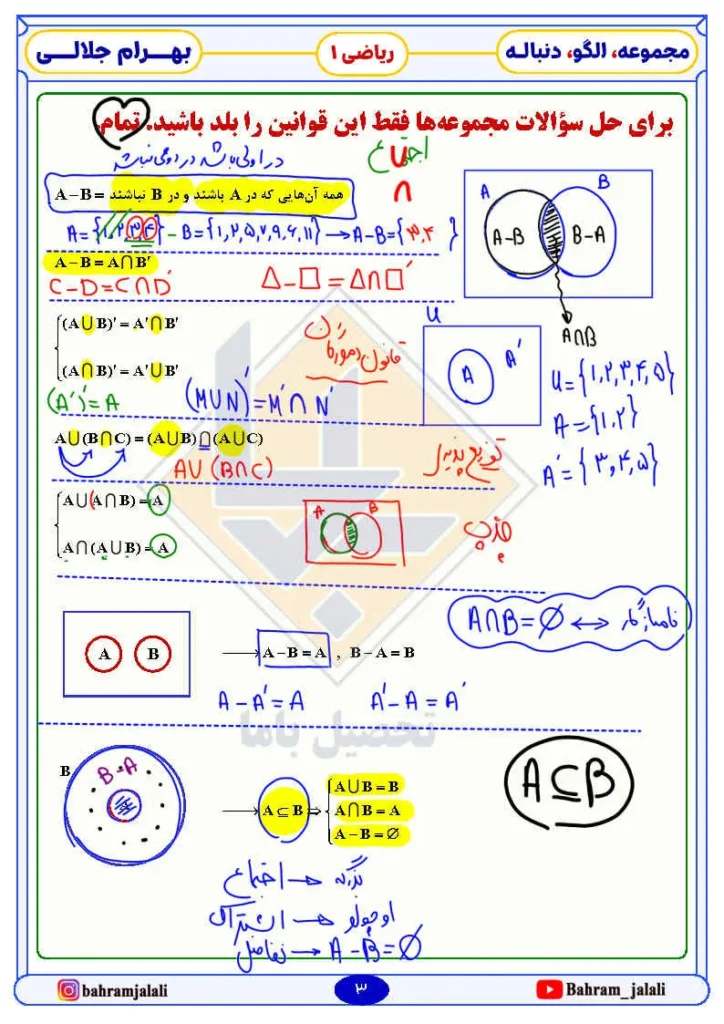 مجموعه، الگو، دنباله
ریاضی ۱
بهـــرام جلالـــی
برای حل سؤالات مجموعه‌ها فقط این قوانین را بلد باشید. تمام
در اولی باشد در دومی نباشد
اجتماع
U
∩
A − B = همه آن‌هایی که در A باشند و در B نباشند
A={1,2,3,4} − B={1,2,5,7,9,6,11} → A-B={3,4}
A
B
A-B
B-A
A∩B
A − B = A∩B′
C-D=C∩D′
△-□=△∩□′
(A∪B)′ = A′∩B′
قانون دمورگان
(A∩B)′ = A′∪B′
(A′)′=A
(M∪N)′=M′∩N′
U
A
A′
U={1,2,3,4,5}
A={1,2}
A′={3,4,5}
A∪(B∩C) = (A∪B)∩(A∪C)
A∪(B∩C)
توزیع پذیری
A∪(A∩B) = A
A∩(A∪B) = A
A
B
جذب
A∩B=∅ ↔ ناسازگار
A
B
→ A − B = A , B − A = B
A-A′=A
A′-A=A′
تحصیل باما
B
B-A
→ A ⊆ B ⇒
A∪B = B
A∩B = A
A − B = ∅
A⊆B
بزرگه → اجتماع
اوچولو → اشتراک
تفاضل → A-B=∅
bahramjalali
۳
Bahram_jalali